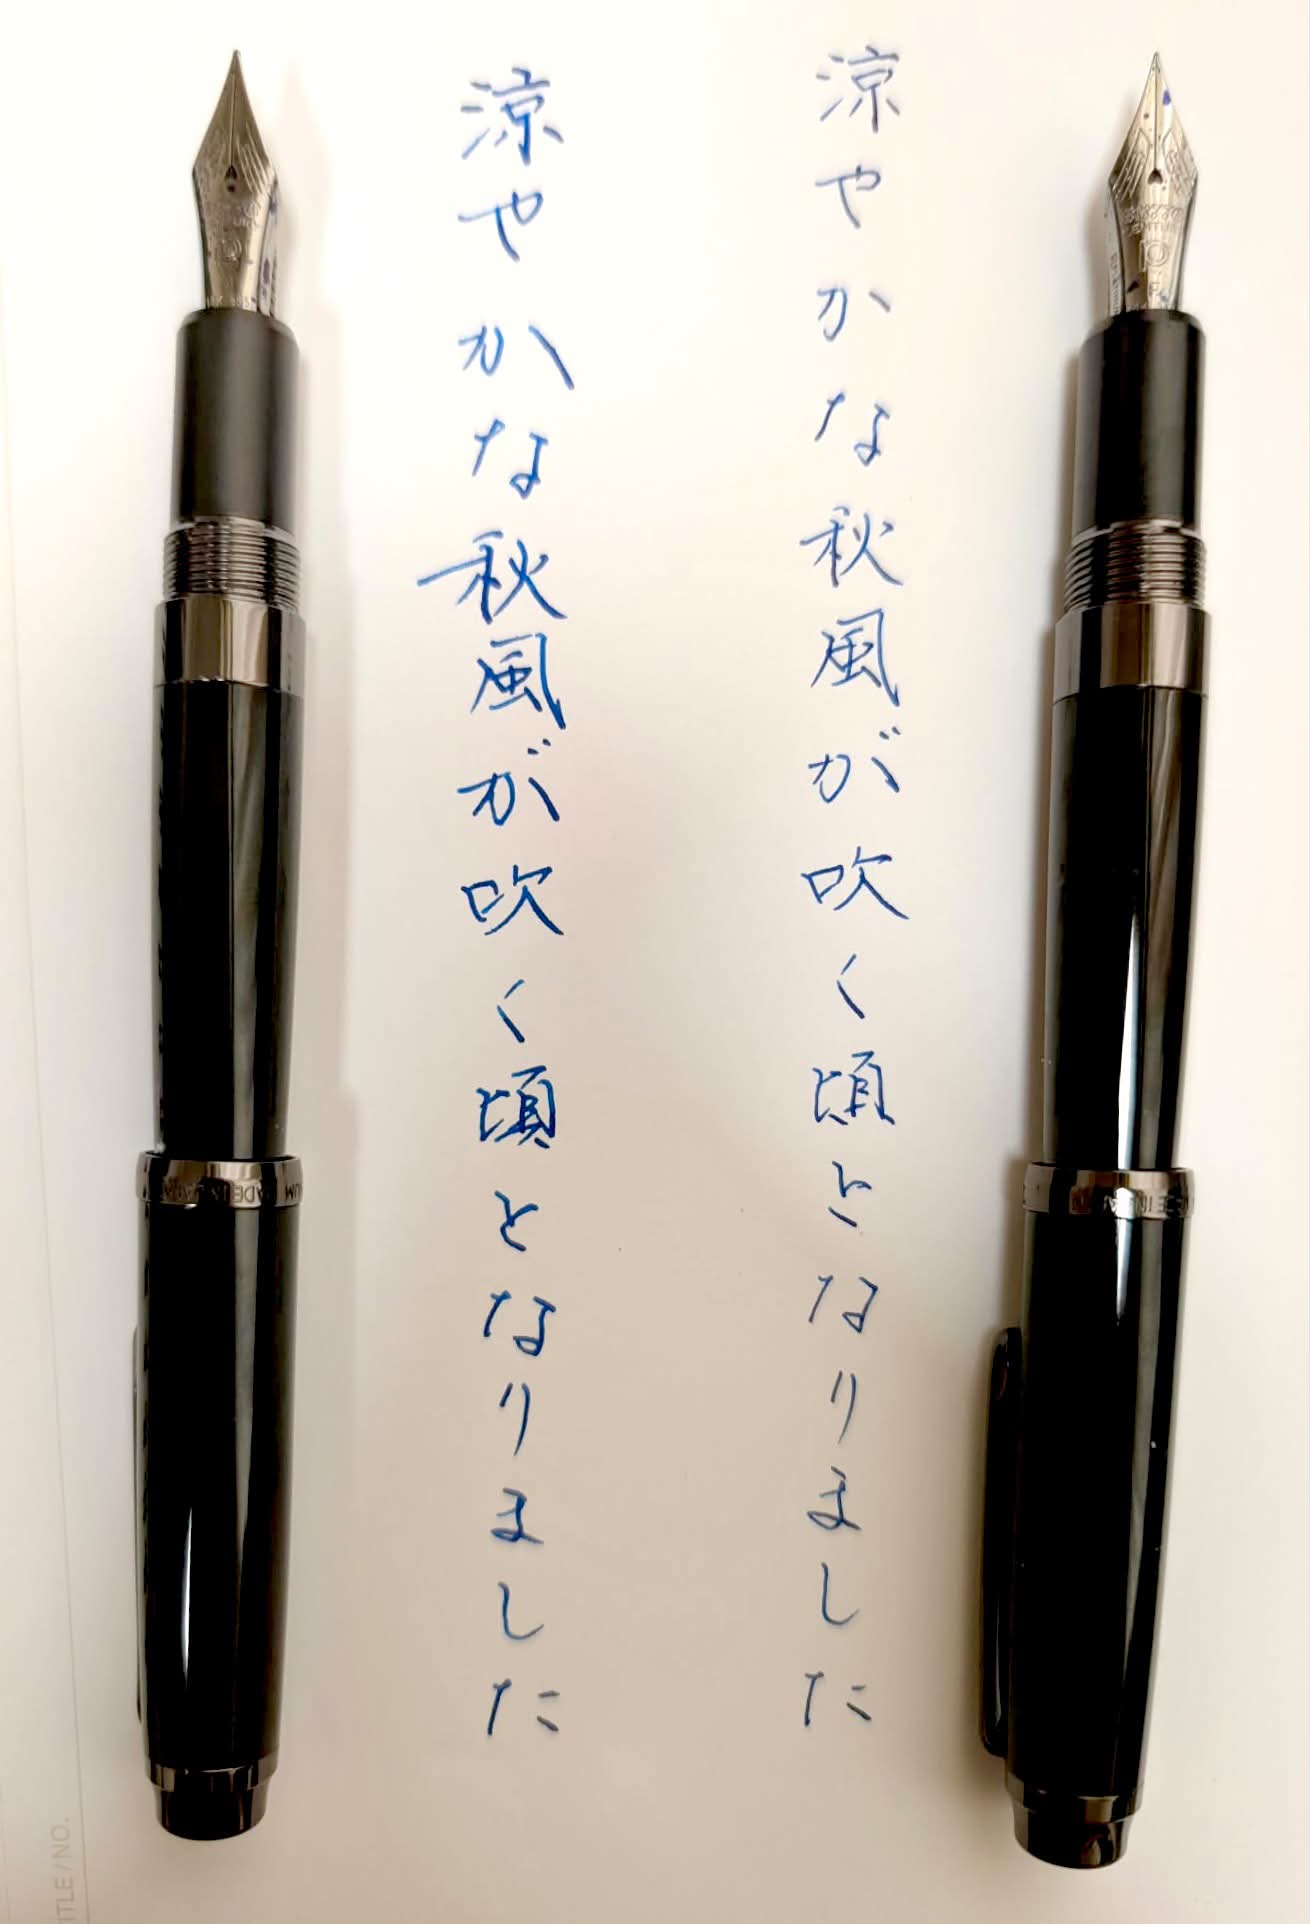 涼やかな秋風が吹く頃となりました
涼やかな秋風が吹く頃となりました
TITLE/NO.